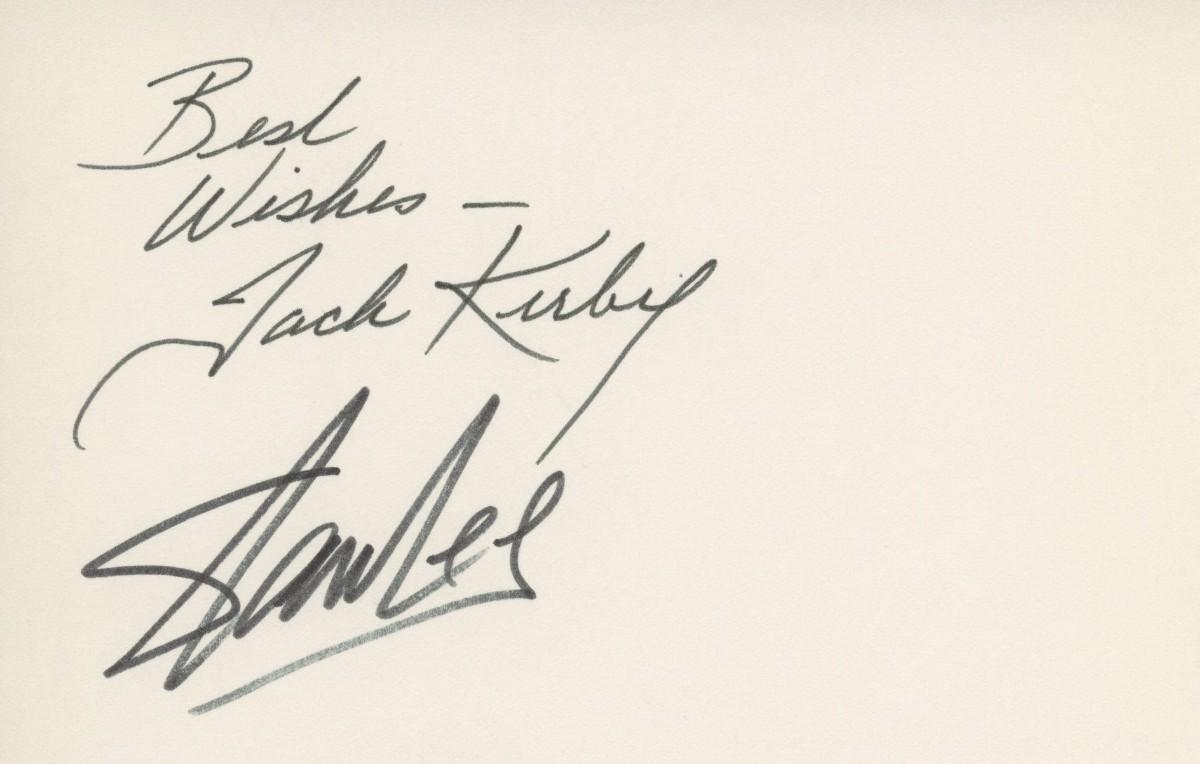 Best
Wishes —
Jack Kirby
Stan Lee